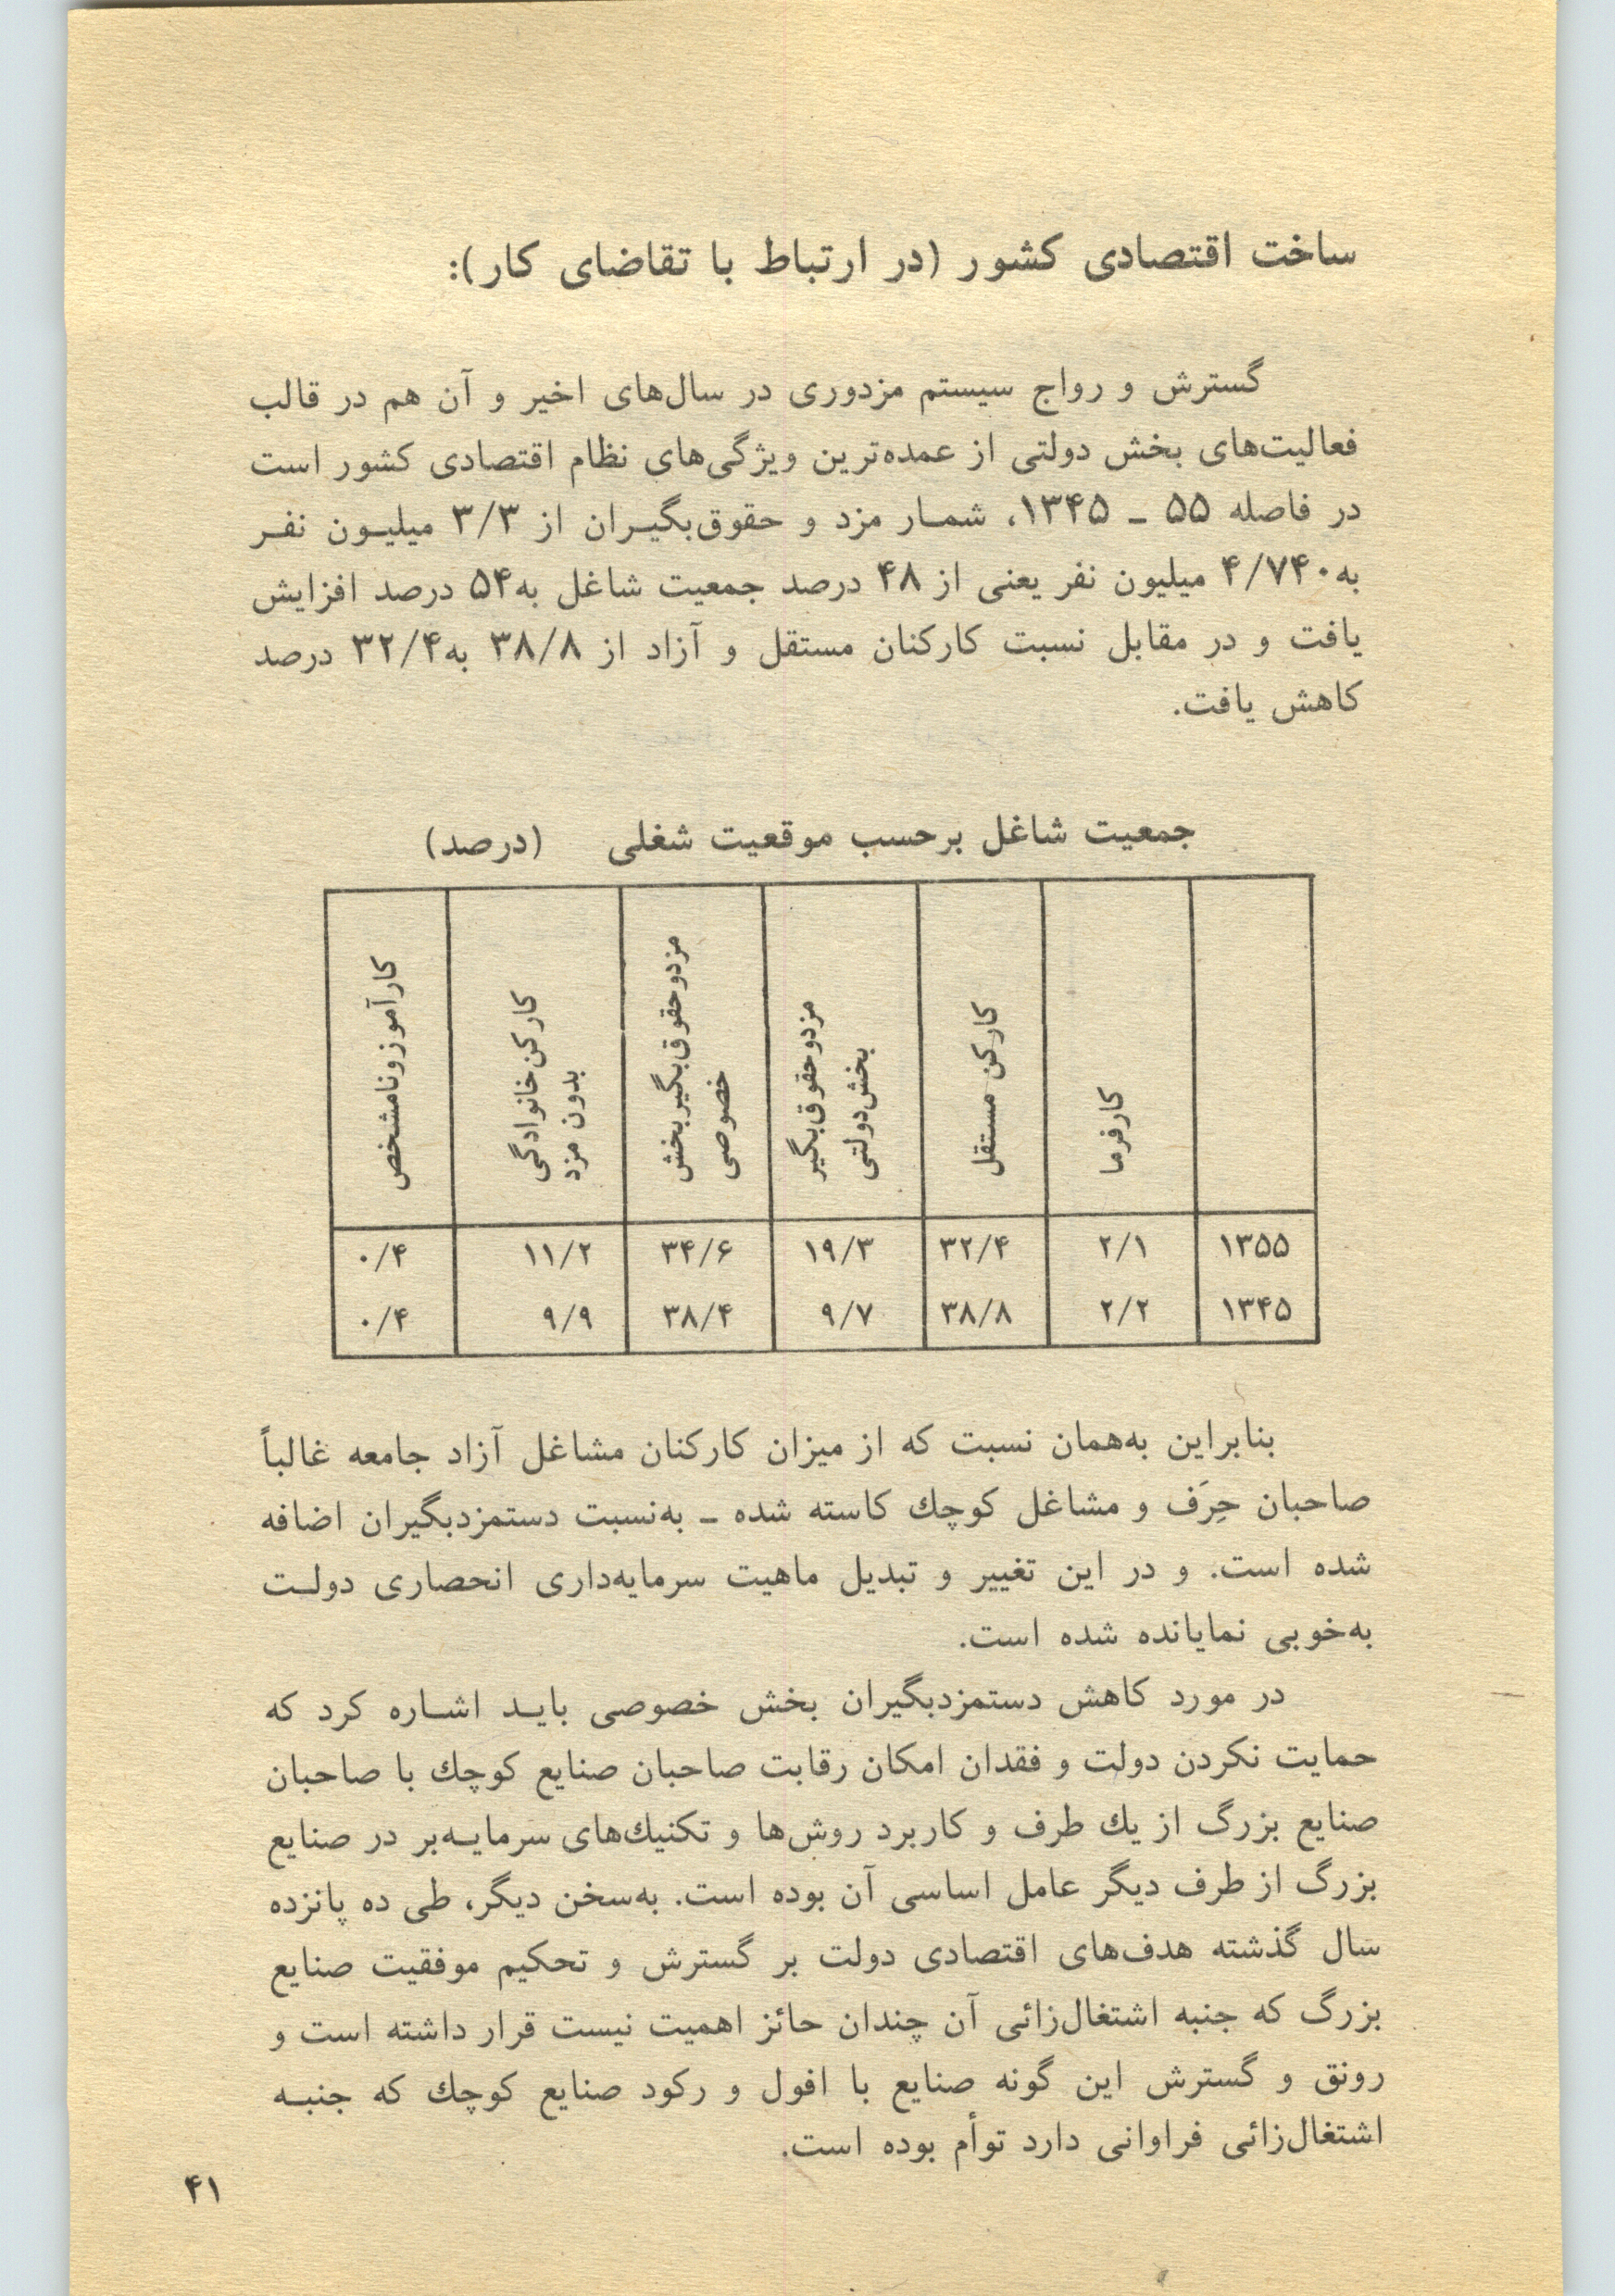 ساخت اقتصادی کشور (در ارتباط با تقاضای کار):
گسترش و رواج سیستم مزدوری در سال‌های اخیر و آن هم در قالب
فعالیت‌های بخش دولتی از عمده‌ترین ویژگی‌های نظام اقتصادی کشور است
در فاصله ۵۵ ـ ۱۳۴۵، شمار مزد و حقوق‌بگیران از ۳/۳ میلیون نفر
به ۴/۷۴۰ میلیون نفر یعنی از ۴۸ درصد جمعیت شاغل به ۵۴ درصد افزایش
یافت و در مقابل نسبت کارکنان مستقل و آزاد از ۳۸/۸ به ۳۲/۴ درصد
کاهش یافت.
جمعیت شاغل برحسب موقعیت شغلی (درصد)
کارفرما
کارکن مستقل
مزدوحقوق‌بگیر
بخش‌دولتی
مزدوحقوق‌بگیربخش
خصوصی
کارکن‌خانوادگی
بدون مزد
کارآموزونامشخص
۱۳۵۵ ۲/۱ ۳۲/۴ ۱۹/۳ ۳۴/۶ ۱۱/۲ ۰/۴
۱۳۴۵ ۲/۲ ۳۸/۸ ۹/۷ ۳۸/۴ ۹/۹ ۰/۴
بنابراین به‌همان نسبت که از میزان کارکنان مشاغل آزاد جامعه غالباً
صاحبان حِرَف و مشاغل کوچك کاسته شده ـ به‌نسبت دستمزدبگیران اضافه
شده است. و در این تغییر و تبدیل ماهیت سرمایه‌داری انحصاری دولت
به‌خوبی نمایانده شده است.
در مورد کاهش دستمزدبگیران بخش خصوصی باید اشاره کرد که
حمایت نکردن دولت و فقدان امکان رقابت صاحبان صنایع کوچك با صاحبان
صنایع بزرگ از یك طرف و کاربرد روش‌ها و تکنیك‌های سرمایه‌بر در صنایع
بزرگ از طرف دیگر عامل اساسی آن بوده است. به‌سخن دیگر، طی ده پانزده
سال گذشته هدف‌های اقتصادی دولت بر گسترش و تحکیم موفقیت صنایع
بزرگ که جنبه اشتغال‌زائی آن چندان حائز اهمیت نیست قرار داشته است و
رونق و گسترش این گونه صنایع با افول و رکود صنایع کوچك که جنبه
اشتغال‌زائی فراوانی دارد توأم بوده است.
۴۱